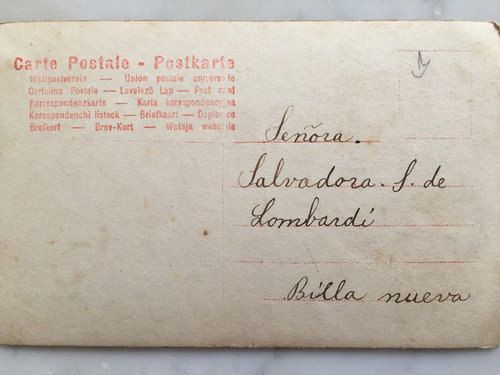 Carte Postale - Postkarte
Weltpostverein — Union postale universelle
Cartolina Postale — Levelező Lap — Post card
Korrespondenzkarte — Karta korespondencyjna
Korespondenchi listeck — Briefkaart — Dopisnice
Brefkort — Brev-Kort —
Señora.
Salvadora. S. de
Lombardí
Billa nueva